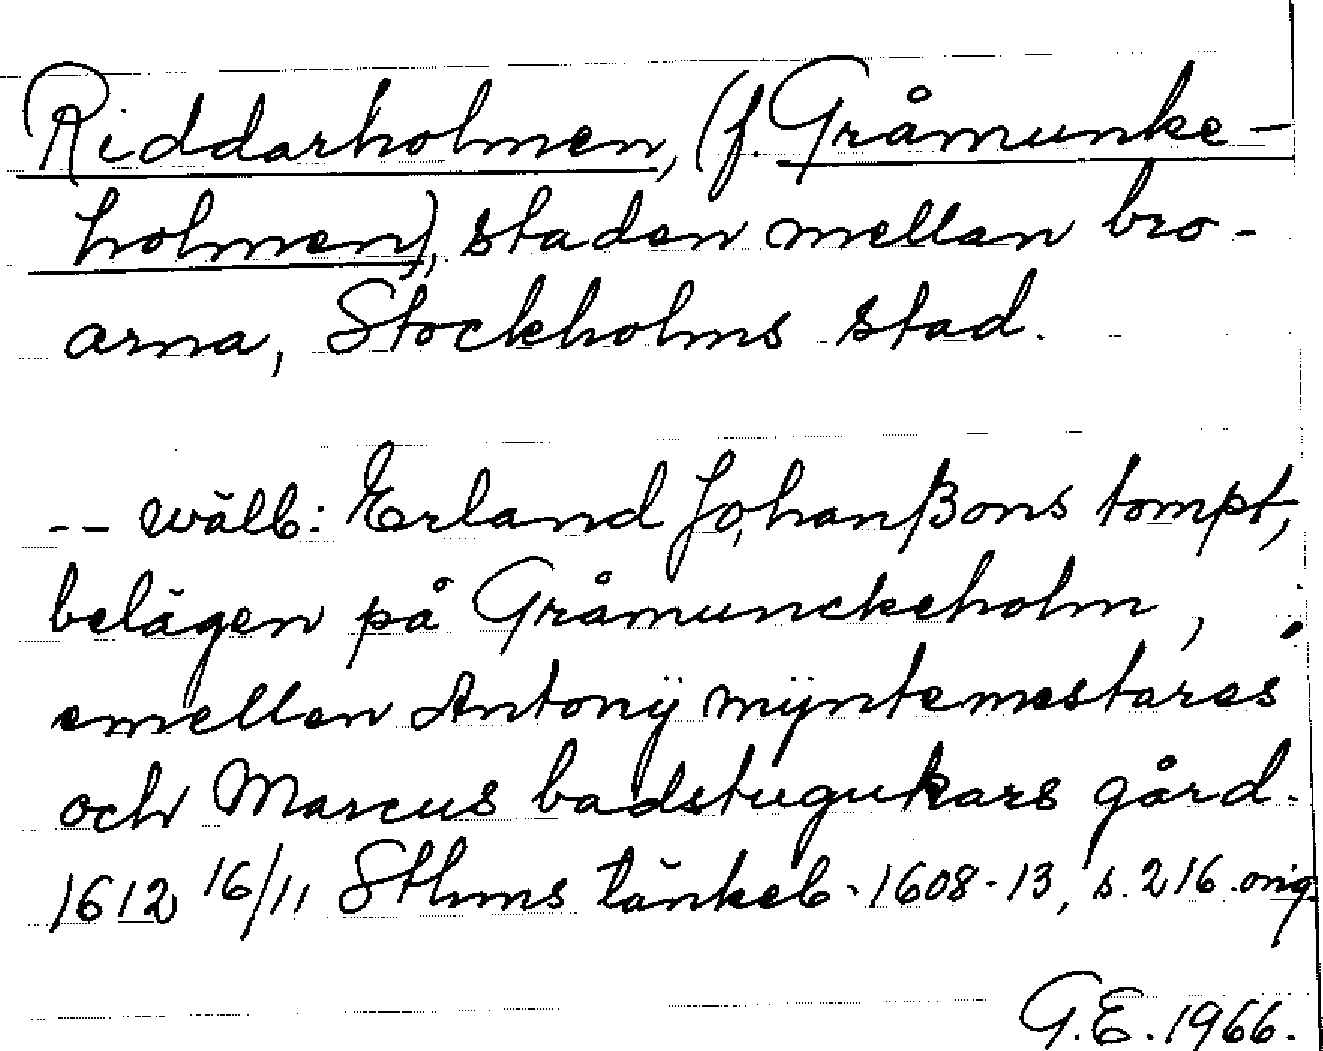 Riddarholmen, (f. Gråmunke-
holmen), staden mellan bro-
arna, Stockholms stad.
-- wälb: Erland Johanßons tompt,
belägen på Gråmunckeholm,
emellan Antonÿ mÿntemestares
och Marcus badstugukars gård.
1612 16/11 Sthms tänkeb. 1608-13, s. 216. orig.
G.E. 1966.